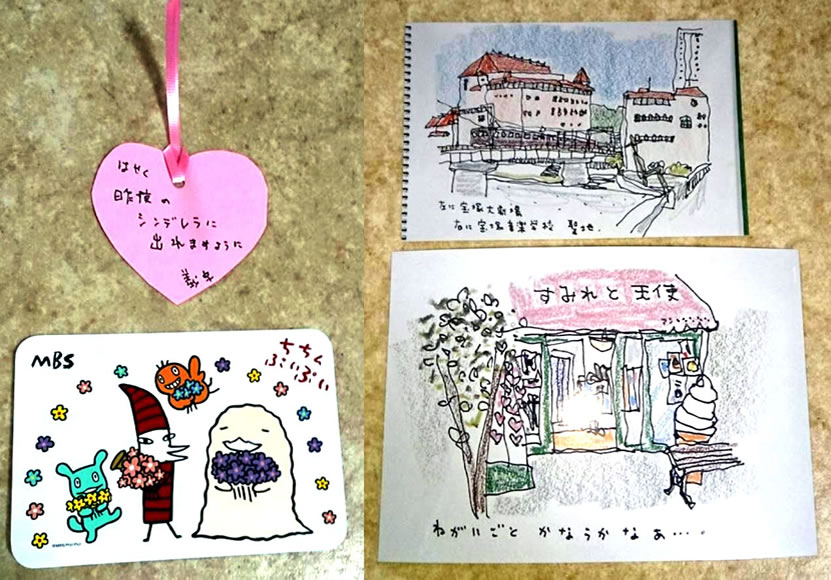 はやく
昨夜の
シンデレラに
出れますように
MBS
ちちん
ぷいぷい
左に宝塚大劇場
右に宝塚音楽学校 聖地.
すみれと天使
ねがいごと かなうかなぁ・・・.